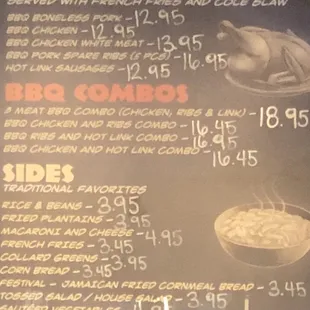 SERVED WITH FRENCH FRIES AND COLE SLAW
BBQ BONELESS PORK - 12.95
BBQ CHICKEN - 12.95
BBQ CHICKEN WHITE MEAT - 13.95
BBQ PORK SPARE RIBS (5 PCS) - 16.95
HOT LINK SAUSAGES - 12.95
BBQ COMBOS
3 MEAT BBQ COMBO (CHICKEN, RIBS & LINK) - 18.95
BBQ CHICKEN AND RIBS COMBO - 16.45
BBQ RIBS AND HOT LINK COMBO - 16.95
BBQ CHICKEN AND HOT LINK COMBO - 16.45
SIDES
TRADITIONAL FAVORITES
RICE & BEANS - 3.95
FRIED PLANTAINS - 3.95
MACARONI AND CHEESE - 4.95
FRENCH FRIES - 3.45
COLLARD GREENS - 3.95
CORN BREAD - 3.45
FESTIVAL - JAMAICAN FRIED CORNMEAL BREAD - 3.45
TOSSED SALAD / HOUSE SALAD - 3.95
SAUTEED VEGETABLES